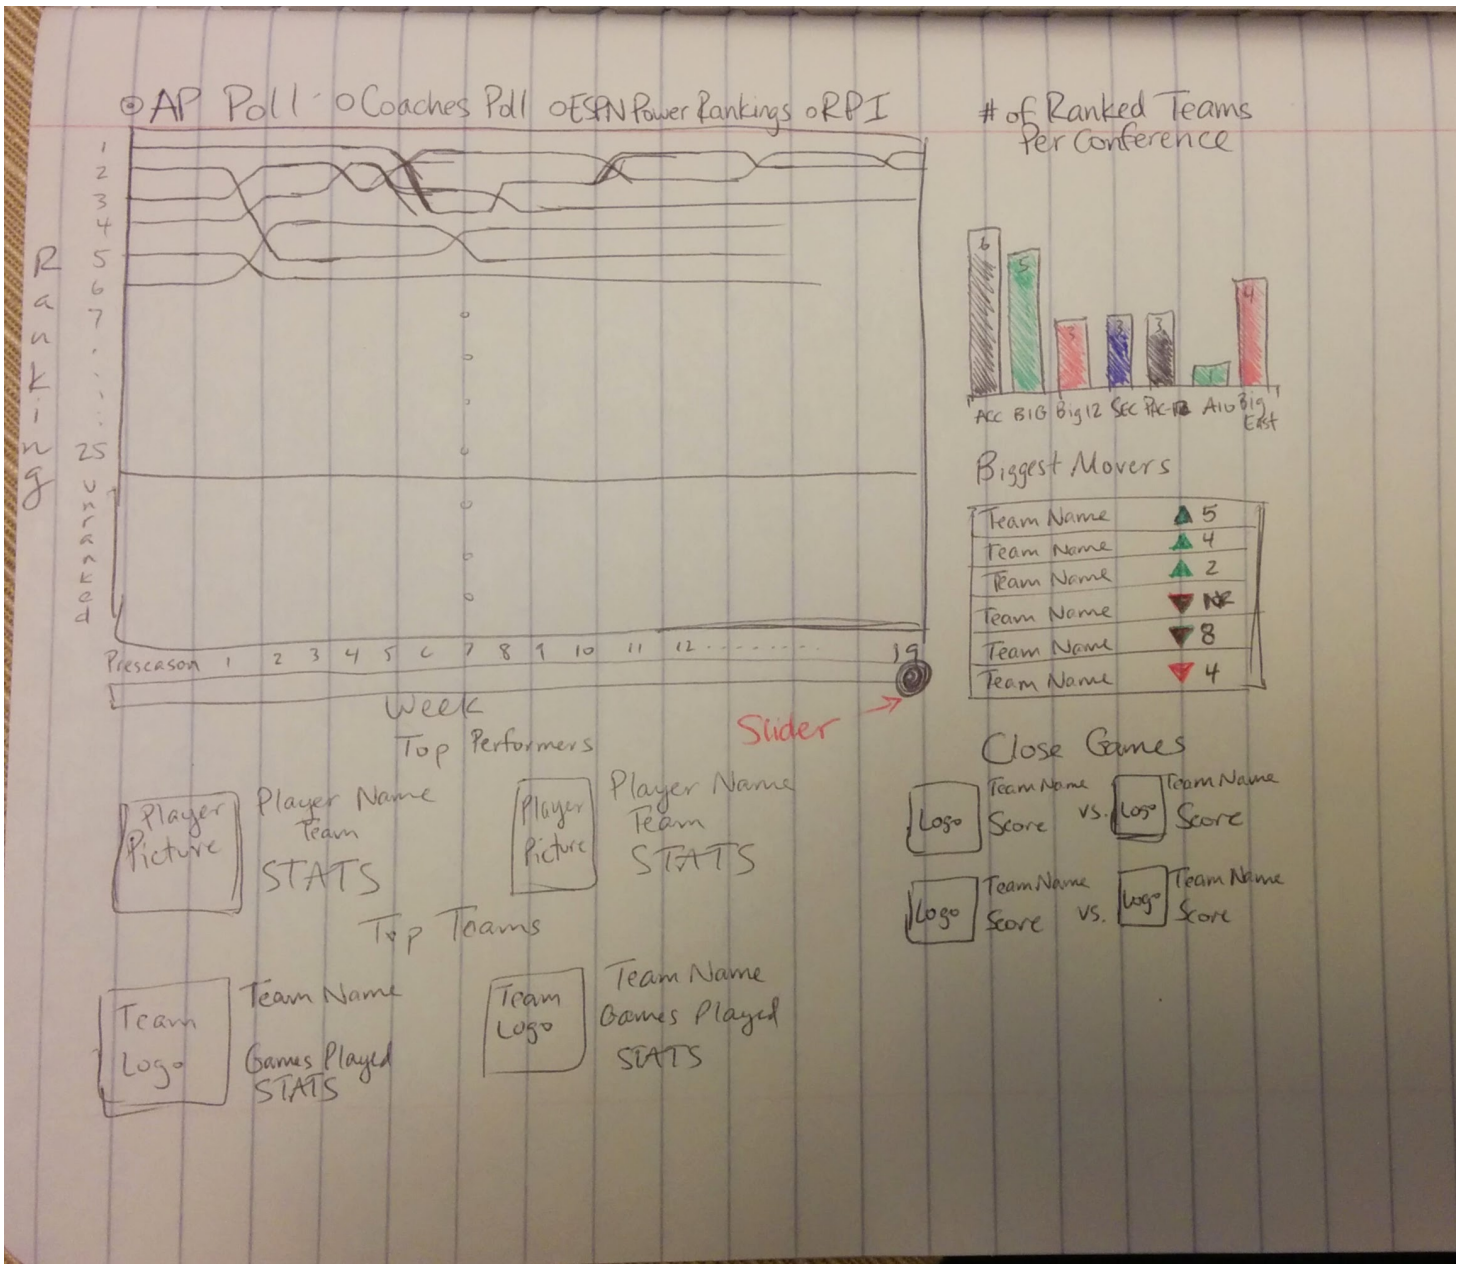 AP Poll Coaches Poll ESPN Power Rankings RPI
1
2
3
4
5
6
7
25
Ranking
Unranked
Preseason 1 2 3 4 5 6 7 8 9 10 11 12 ........ 19
Week
Slider
# of Ranked Teams
Per Conference
6 5 3 3 3 1 4
ACC BIG Big 12 SEC PAC-12 A10 Big
East
Biggest Movers
Team Name 5
Team Name 4
Team Name 2
Team Name NR
Team Name 8
Team Name 4
Top Performers
Player
Picture
Player Name
Team
STATS
Player
Picture
Player Name
Team
STATS
Top Teams
Team
Logo
Team Name
Games Played
STATS
Team
Logo
Team Name
Games Played
STATS
Close Games
Logo
Team Name
Score
vs.
Logo
Team Name
Score
Logo
Team Name
Score
vs.
Logo
Team Name
Score